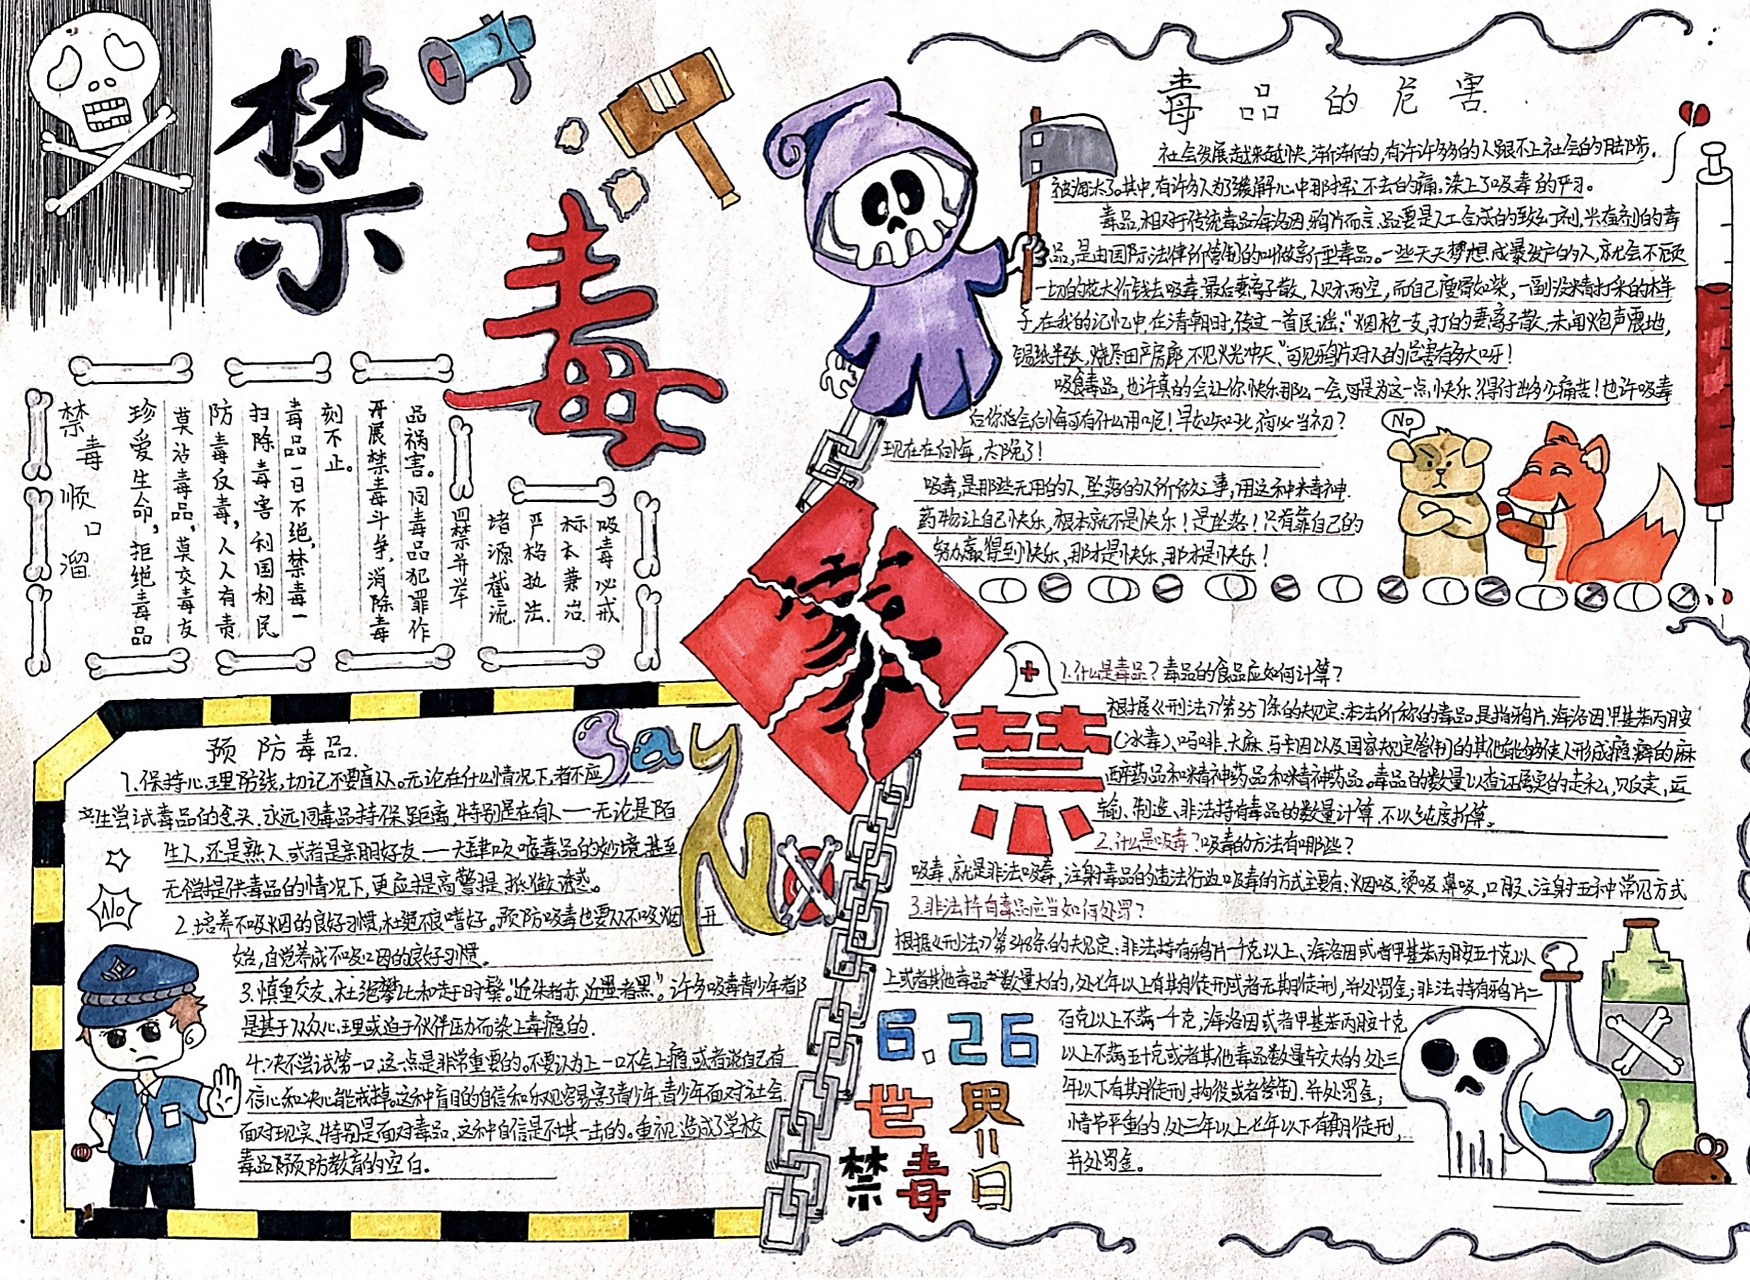 禁
毒
禁毒顺口溜
珍爱生命,拒绝毒品
莫沾毒品,莫交毒友
防毒反毒,人人有责
扫除毒害利国利民
毒品一日不绝,禁毒一
刻不止。
开展禁毒斗争,消除毒
品祸害。同毒品犯罪作
四禁并举
堵源截流
严格执法
标本兼治
吸毒必戒
毒品的危害
社会发展越来越快,渐渐的,有许许多多的人跟不上社会的脚步.
被淘汰了。其中,有许多人为了缓解心中那挥之不去的痛,染上了吸毒的平习。
毒品,相对于传统毒品海洛因,鸦片而言,品要是人工合成的致幻剂,兴奋剂的毒
品,是由国际法律所管制的叫做新型毒品。一些天天梦想成暴发户的人,就会不顾
一切的花大价钱去吸毒.最后妻离子散,人财两空,而自己瘦骨如柴,一副没精打采的样
子,在我的记忆中,在清朝时,传过一首民谣:“烟枪一支,打的妻离子散,未闻炮声震地,
锡纸半张,烧尽田产房廊,不见火光冲天”可见鸦片对人的危害有多大呀!
吸食毒品,也许真的会让你快乐那么一会,可是为这一点快乐,得付出多少痛苦!也许吸毒
后你总会后悔可有什么用呢!早知如此,何必当初?
现在在向悔,太晚了!
吸毒,是那些无用的人,坠落的人所做之事,用这种来毒神
药物让自己快乐,根本就不是快乐!是坠落!只有靠自己的
努力赢得到快乐,那才是快乐,那才是快乐!
No
家
禁
1.什么是毒品?毒品的食品应如何计算?
根据《刑法》第357条的规定:本法所称的毒品,是指鸦片.海洛因.甲基苯丙胺
(冰毒)、吗啡、大麻、可卡因以及国家规定管制的其他能够使人形成瘾癖的麻
醉药品和精神药品和精神药品。毒品的数量以查证属实的走私,贩卖,运
输、制造、非法持有毒品的数量计算,不以纯度折算。
2.什么是吸毒?吸毒的方法有哪些?
吸毒,就是非法吸毒,注射毒品的违法行为.吸毒的方式主要有:烟吸,烫吸,鼻吸,口服、注射五种常见方式
3.非法持有毒品应当如何处罚?
根据《刑法》第348条的规定:非法持有鸦片一千克以上、海洛因或者甲基苯丙胺五十克以
上或者其他毒品数量大的,处七年以上有期徒刑或者无期徒刑,并处罚金;非法持有鸦片二
百克以上不满一千克,海洛因或者甲基苯丙胺十克
以上不满五十克或者其他毒品数量较大的,处三
年以下有期徒刑,拘役或者管制.并处罚金;
情节严重的,处三年以上七年以下有期徒刑,
并处罚金。
Say
No
预防毒品.
1.保持心理防线,切记不要盲从。无论在什么情况下,都不应
产生尝试毒品的念头、永远同毒品持保足距离,特别是在有人——无论是陌
生人,还是熟人或者是亲朋好友——大肆吹嘘毒品的妙境甚至
无偿提供毒品的情况下,更应提高警提,抵做诱惑。
No
2.培养不吸烟的良好习惯,杜绝不良嗜好。预防吸毒也要从不吸烟开
始,自觉养成不吸烟的良好习惯。
3.慎重交友、杜绝攀比和走于时髦.“近朱者赤,近墨者黑”。许多吸毒青少年都
是基于从众心理或迫于伙伴压力而染上毒瘾的.
4.决不尝试第一口,这一点是非常重要的。不要认为上一口不会上瘾,或者说自己有
信心和决心能戒掉。这种盲目的自信和乐观容易害了青少年,青少年面对社会
面对现实、特别是面对毒品,这种自信是不共一击的。重视造成了学校
毒品预防教育的空白.
6.26
世界
禁毒日